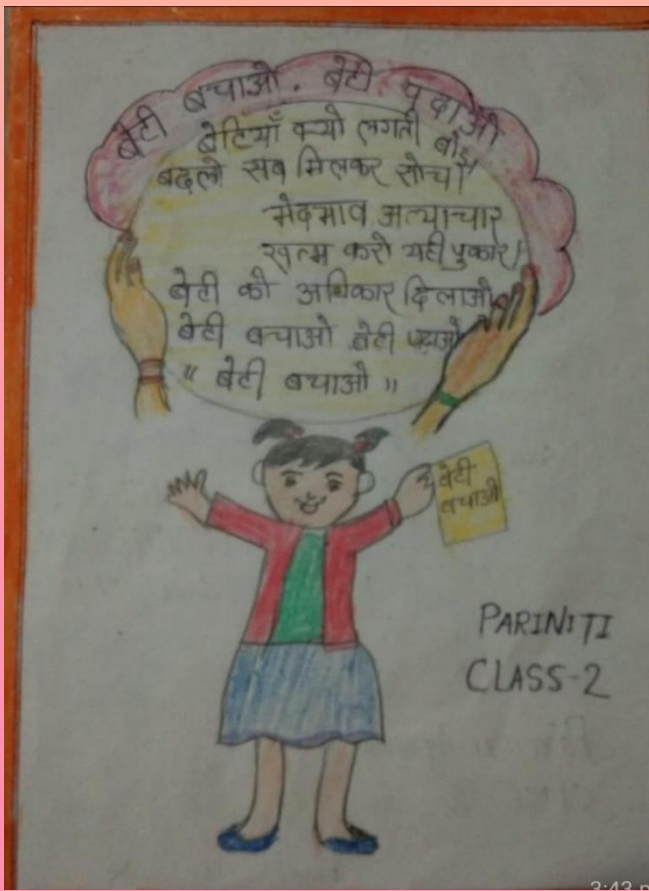 बेटी बचाओ. बेटी पढ़ाओ
बेटियाँ क्यो लगती बोझ
बदलो सब मिलकर सोच।
भेदभाव अत्याचार
खत्म करो यही पुकार।
बेटी को अधिकार दिलाओ
बेटी बचाओ बेटी पढ़ाओ
"बेटी बचाओ"
बेटी
बचाओ
PARINITI
CLASS-2